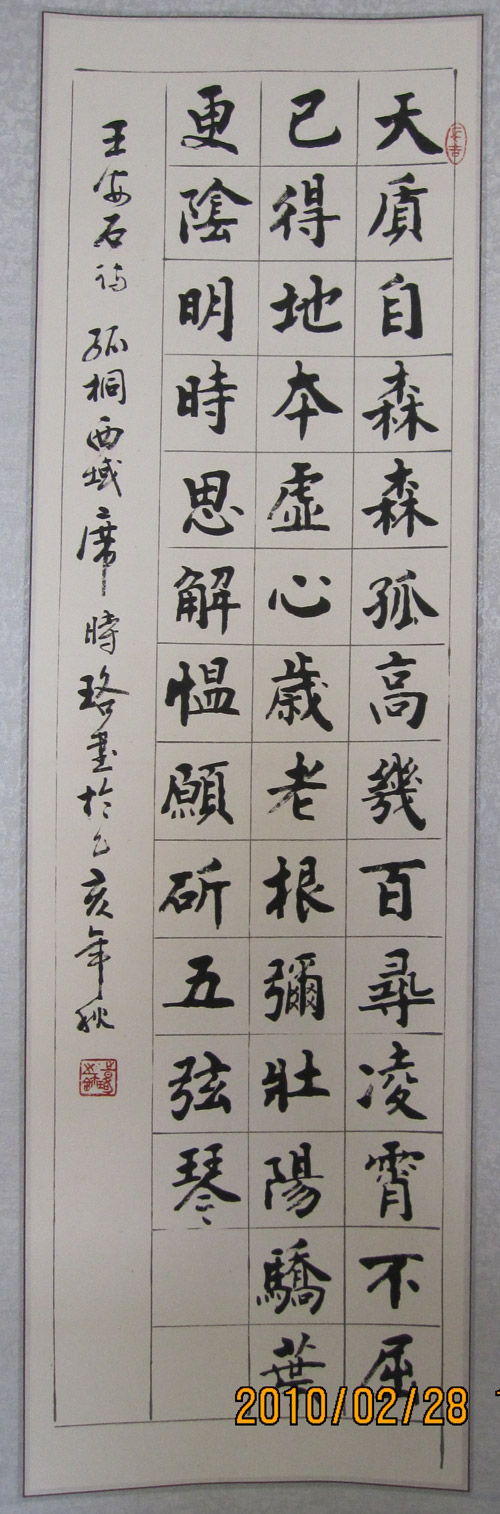 天質自森森孤高幾百尋凌霄不屈
已得地本虛心歲老根彌壯陽驕葉
更陰明時思解慍願斫五弦琴
王安石詩 孤桐 西域 席時珞書於乙亥年秋
2010/02/28